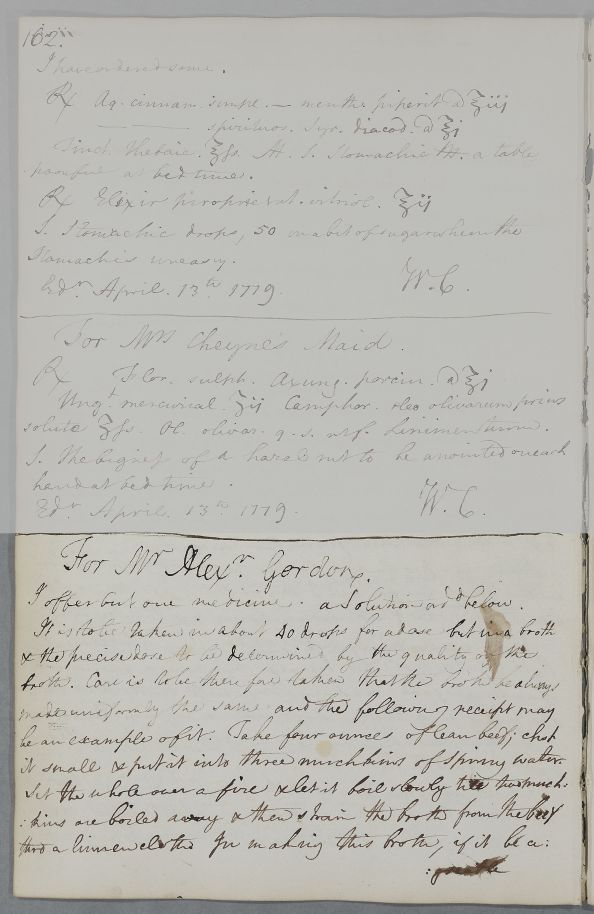 162.
I have ordered some.
℞ Aq. cinnam. simpl. — menthæ piperit a ℥iij
———— spirituos. Syr. diacod. a ℥j
Tinct. Thebaic. ʒſs. M. S. Stomachic a table
spoonful at bed time.
℞ Elixir proprietat. vitriol. ʒij
S. Stomachic drops, 50 on a bit of sugar when the
stomach is uneasy.
Edr. April. 13th 1779. W. C.
For Mrs Cheyne's Maid.
℞ Flor. sulph. Axung. porcin. a ℥j
Ungt. mercurial. ʒij Camphor. oleo olivarum prius
solutæ ʒſs. Ol. olivar. q. s. ut f. Linimentum.
S. The bigness of a hazel nut to be anointed on each
hand at bed time.
Edr. April. 13th 1779. W. C.
For Mr Alexr. Gordon.
I offer but one medicine. a Solution as below.
It is to be taken in about 40 drops for a dose but in a broth
& the precise dose to be determined by the quality of the
broth. Care is to be therefore taken that the broth be always
made uniformly the same and the following receipt may
be an example of it. Take four ounces of lean beef; chop
it small & put it into three mutchkins of spring water.
Set the whole over a fire & let it boil slowly till two mutch:
:kins are boiled away & then strain the broth from the beef
thro a linnen cloth. In making this broth, if it be a: